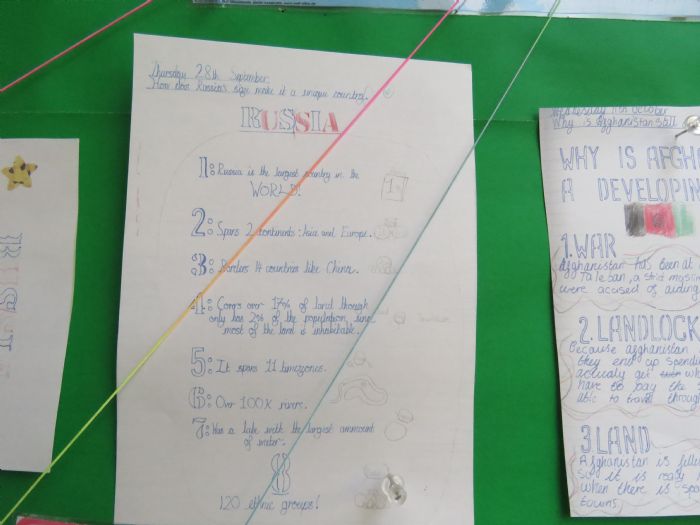 Thursday 28th September
How does Russia's size make it a unique country?
RUSSIA
1: Russia is the largest country in the
WORLD!
2: Spans 2 continents: Asia and Europe.
3: Borders 14 countries like China.
4: Covers over 17% of land though
only has 2% of the population, since
most of the land is inhabitable.
5: It spans 11 timezones.
6: Over 100K rivers.
7: Has a lake with the largest ammount
of water.
8
120 ethnic groups!
October
Why is Afghanistan still
WHY IS AFGHA
A DEVELOPIN
1. WAR
Afghanistan has been at
Taleban, a strict
were accused of aiding
2. LANDLOCK
Because afghanistan
they end up spendi
actualy get
have to pay the
able to travel through
3. LAND
Afghanistan is fille
So it is really
when there is spa
towns.